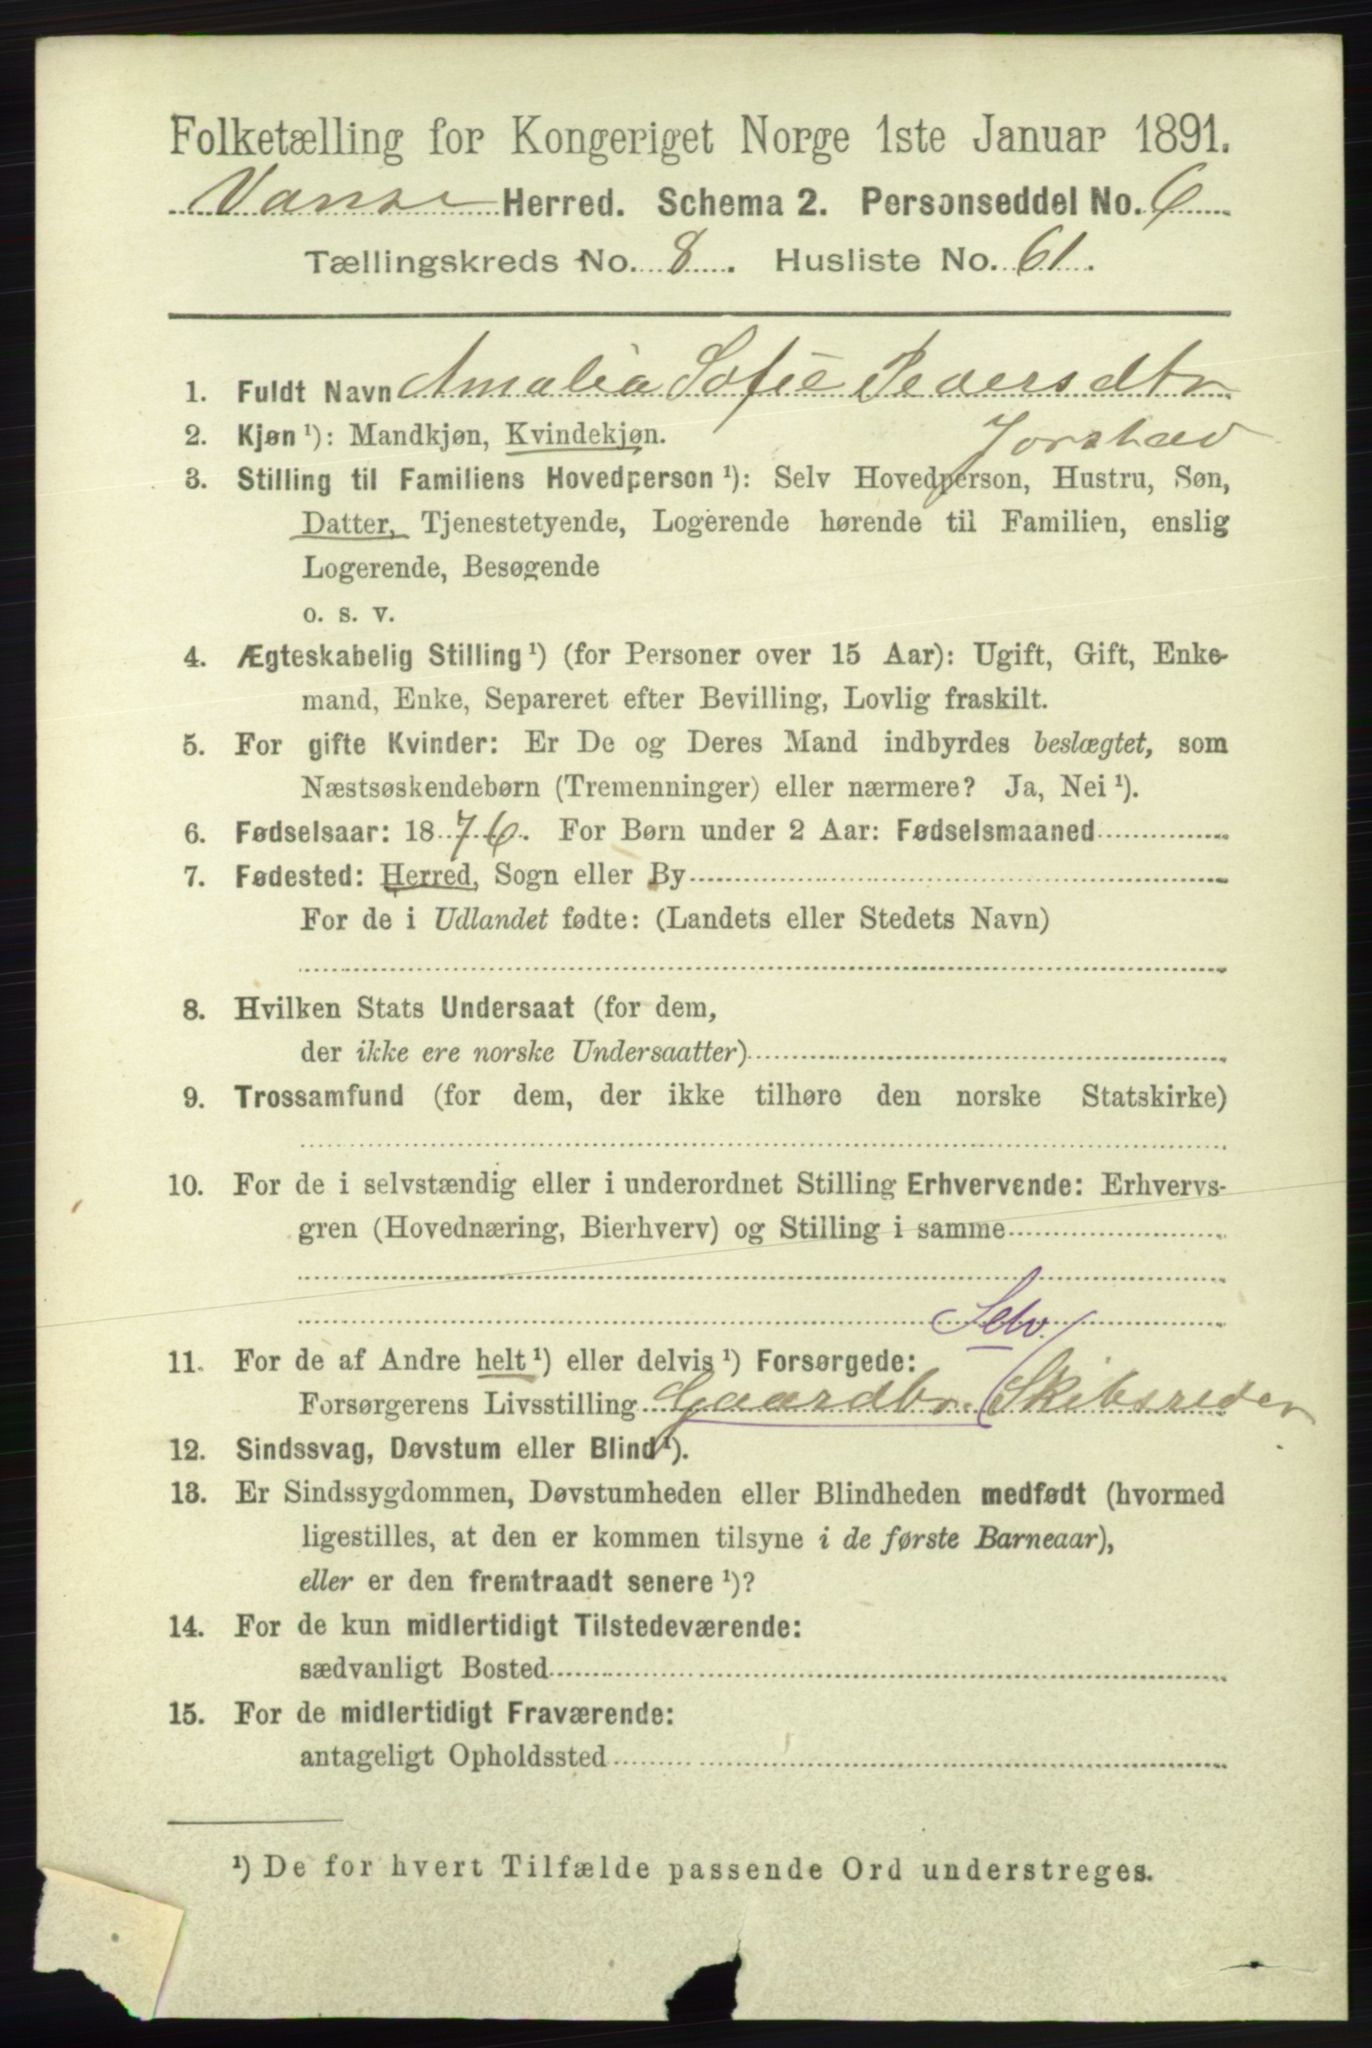 Folketælling for Kongeriget Norge 1ste Januar 1891.
Vanse Herred. Schema 2. Personseddel No. 6
Tællingskreds No. 8. Husliste No. 61.
1. Fuldt Navn Amalia Sofie Pedersdtr
2. Kjøn ¹): Mandkjøn, Kvindekjøn. Jorstad
3. Stilling til Familiens Hovedperson ¹): Selv Hovedperson, Hustru, Søn,
Datter, Tjenestetyende, Logerende hørende til Familien, enslig
Logerende, Besøgende
o. s. v.
4. Ægteskabelig Stilling ¹) (for Personer over 15 Aar): Ugift, Gift, Enke-
mand, Enke, Separeret efter Bevilling, Lovlig fraskilt.
5. For gifte Kvinder: Er De og Deres Mand indbyrdes beslægtet, som
Næstsøskendebørn (Tremenninger) eller nærmere? Ja, Nei ¹).
6. Fødselsaar: 1876. For Børn under 2 Aar: Fødselsmaaned
7. Fødested: Herred, Sogn eller By
For de i Udlandet fødte: (Landets eller Stedets Navn)
8. Hvilken Stats Undersaat (for dem,
der ikke ere norske Undersaatter)
9. Trossamfund (for dem, der ikke tilhøre den norske Statskirke)
10. For de i selvstændig eller i underordnet Stilling Erhvervende: Erhvervs-
gren (Hovednæring, Bierhverv) og Stilling i samme
Selv.
11. For de af Andre helt ¹) eller delvis ¹) Forsørgede:
Forsørgerens Livsstilling Gaardbr. Skibsreder
12. Sindssvag, Døvstum eller Blind ¹).
13. Er Sindssygdommen, Døvstumheden eller Blindheden medfødt (hvormed
ligestilles, at den er kommen tilsyne i de første Barneaar),
eller er den fremtraadt senere ¹)?
14. For de kun midlertidigt Tilstedeværende:
sædvanligt Bosted
15. For de midlertidigt Fraværende:
antageligt Opholdssted
¹) De for hvert Tilfælde passende Ord understreges.